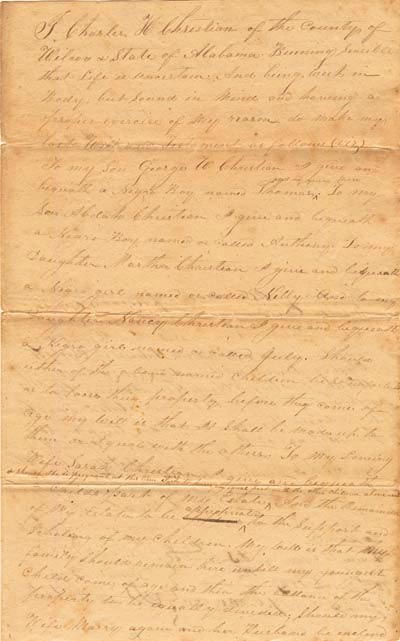 I, Charles H Christian of the County of
Wilcox & State of Alabama
that Life is uncertain, and being weak in
Body, but Sound in Mind and having a
proper exercise of my reason do make my
last Will and Testament as follows (viz)
To my Son George W Christian I give and
bequeath a Negro Boy named Thomas, To my
Son Christian I give and bequeath
a Negro Boy named or called Anthony To my
Daughter Martha Christian I give and bequeath
a Negro girl named or called Kitty And to my
Daughter Nancy Christian I give and bequeath
a Negro girl named or called Judy. Should
either of the above named children be so
as to loose this property before they come of
age my will is that it Shall be made up to
them or equal with the others To my Loving
Wife Sarah Christian I give and bequeath
part of my Estate, And the remainder
of my Estate to be appropriated to the Support and
Schooling of my Children. My will is that my
family should remain here untill my youngest
Child come of age and then the ballance of the
property to be equally divided; Should my
Wife Marry again and her Husband be